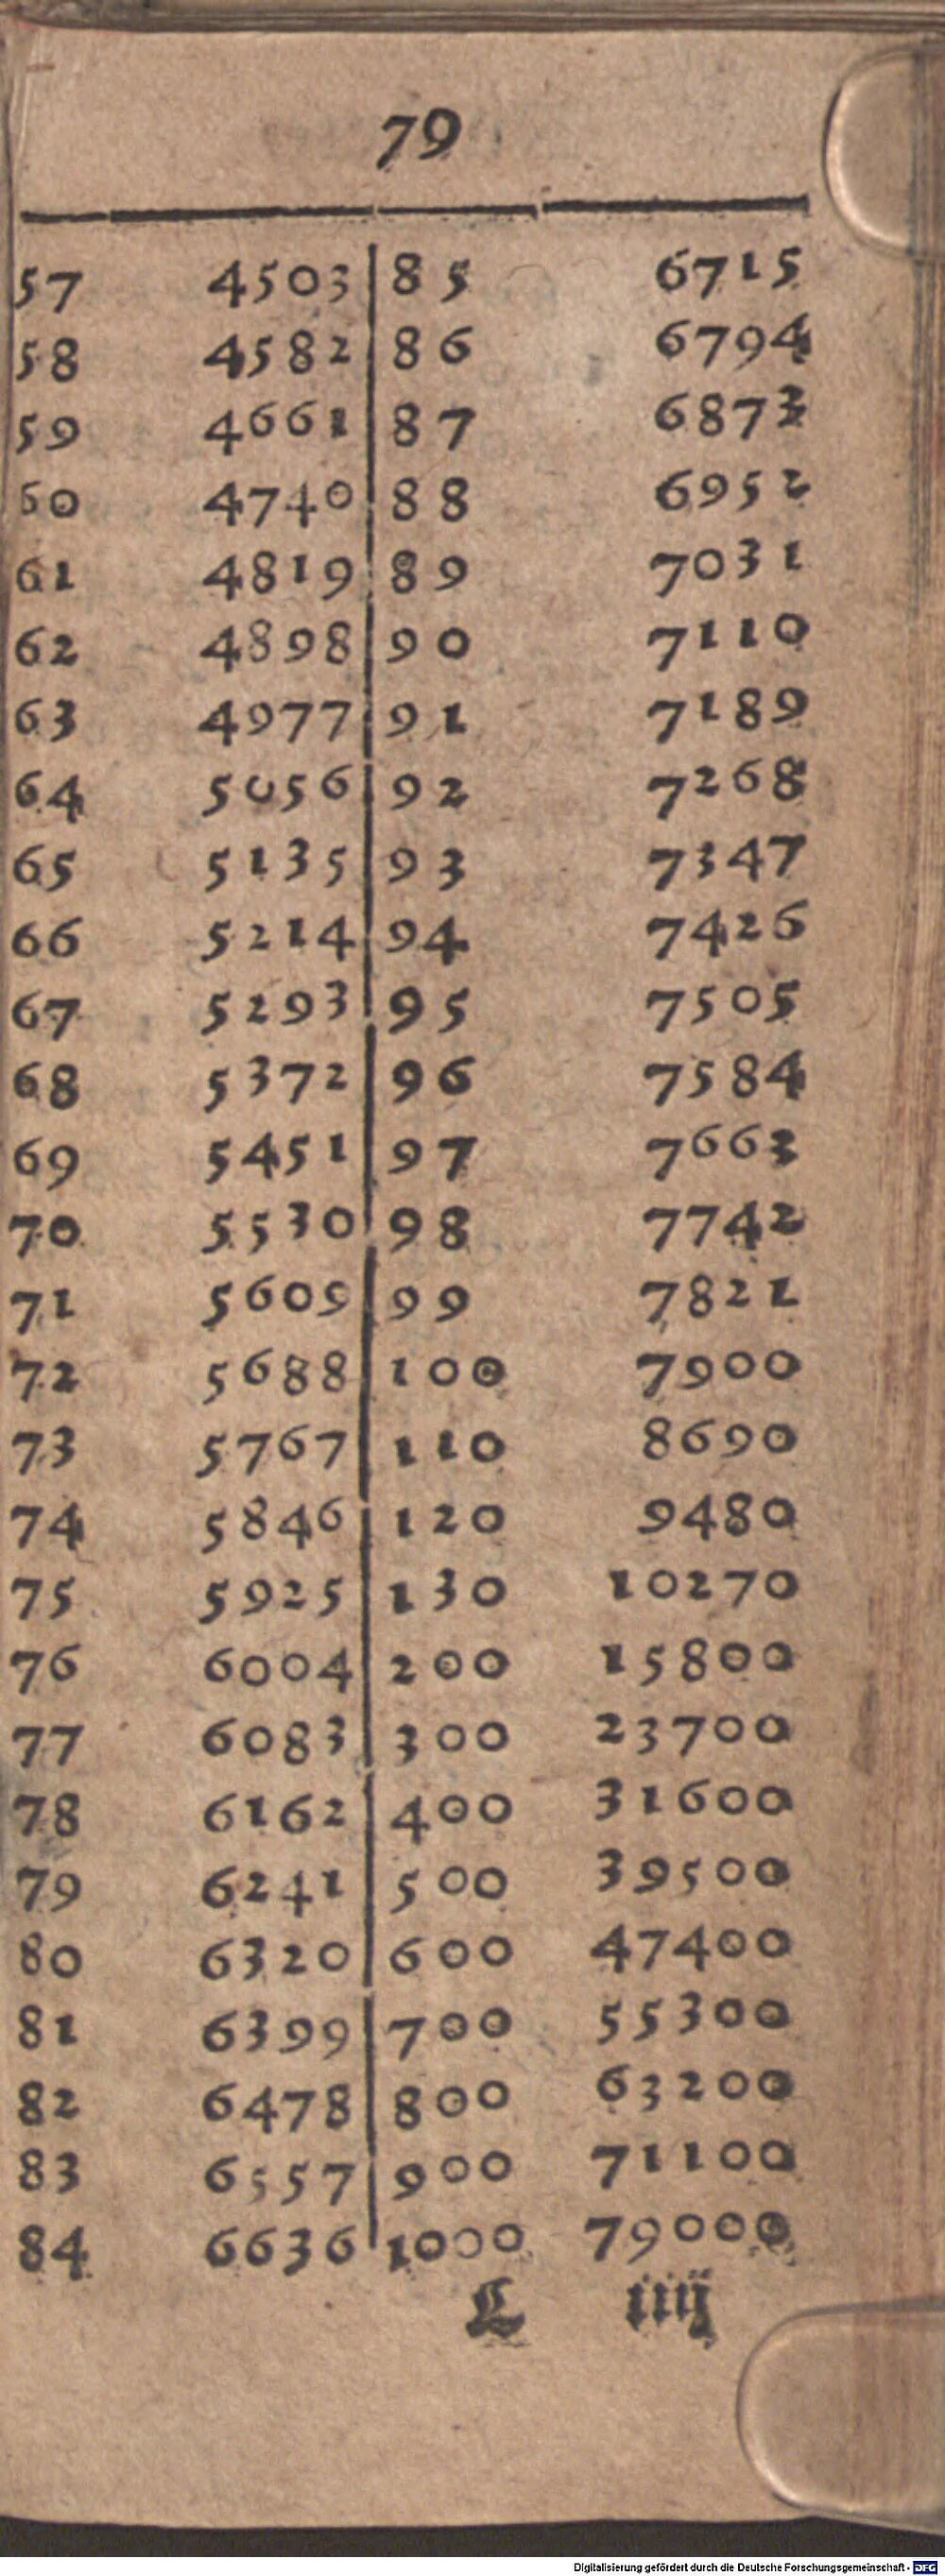 79
57 4503 85 6715
58 4582 86 6794
59 4661 87 6873
60 4740 88 6952
61 4819 89 7031
62 4898 90 7110
63 4977 91 7189
64 5056 92 7268
65 5135 93 7347
66 5214 94 7426
67 5293 95 7505
68 5372 96 7584
69 5451 97 7663
70 5530 98 7742
71 5609 99 7821
72 5688 100 7900
73 5767 110 8690
74 5846 120 9480
75 5925 130 10270
76 6004 200 15800
77 6083 300 23700
78 6162 400 31600
79 6241 500 39500
80 6320 600 47400
81 6399 700 55300
82 6478 800 63200
83 6557 900 71100
84 6636 1000 79000
L iiij
Digitalisierung gefördert durch die Deutsche Forschungsgemeinschaft - DFG